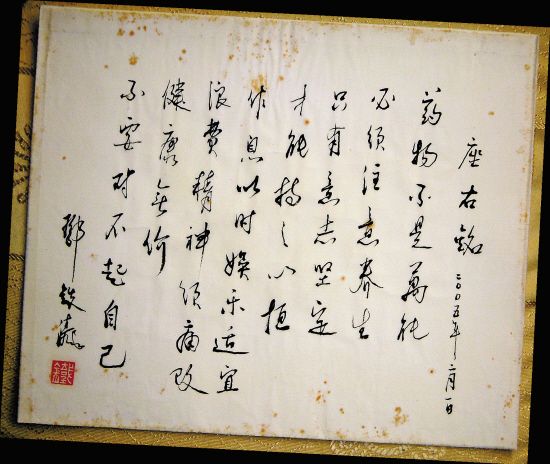 座右銘
二〇〇五年
药物不是萬能
必须注意养生
只有意志坚定
才能持之以恒
作息以时娱乐适宜
浪費精神须痛改
健康無价
不要对不起自己
鄧鉄涛